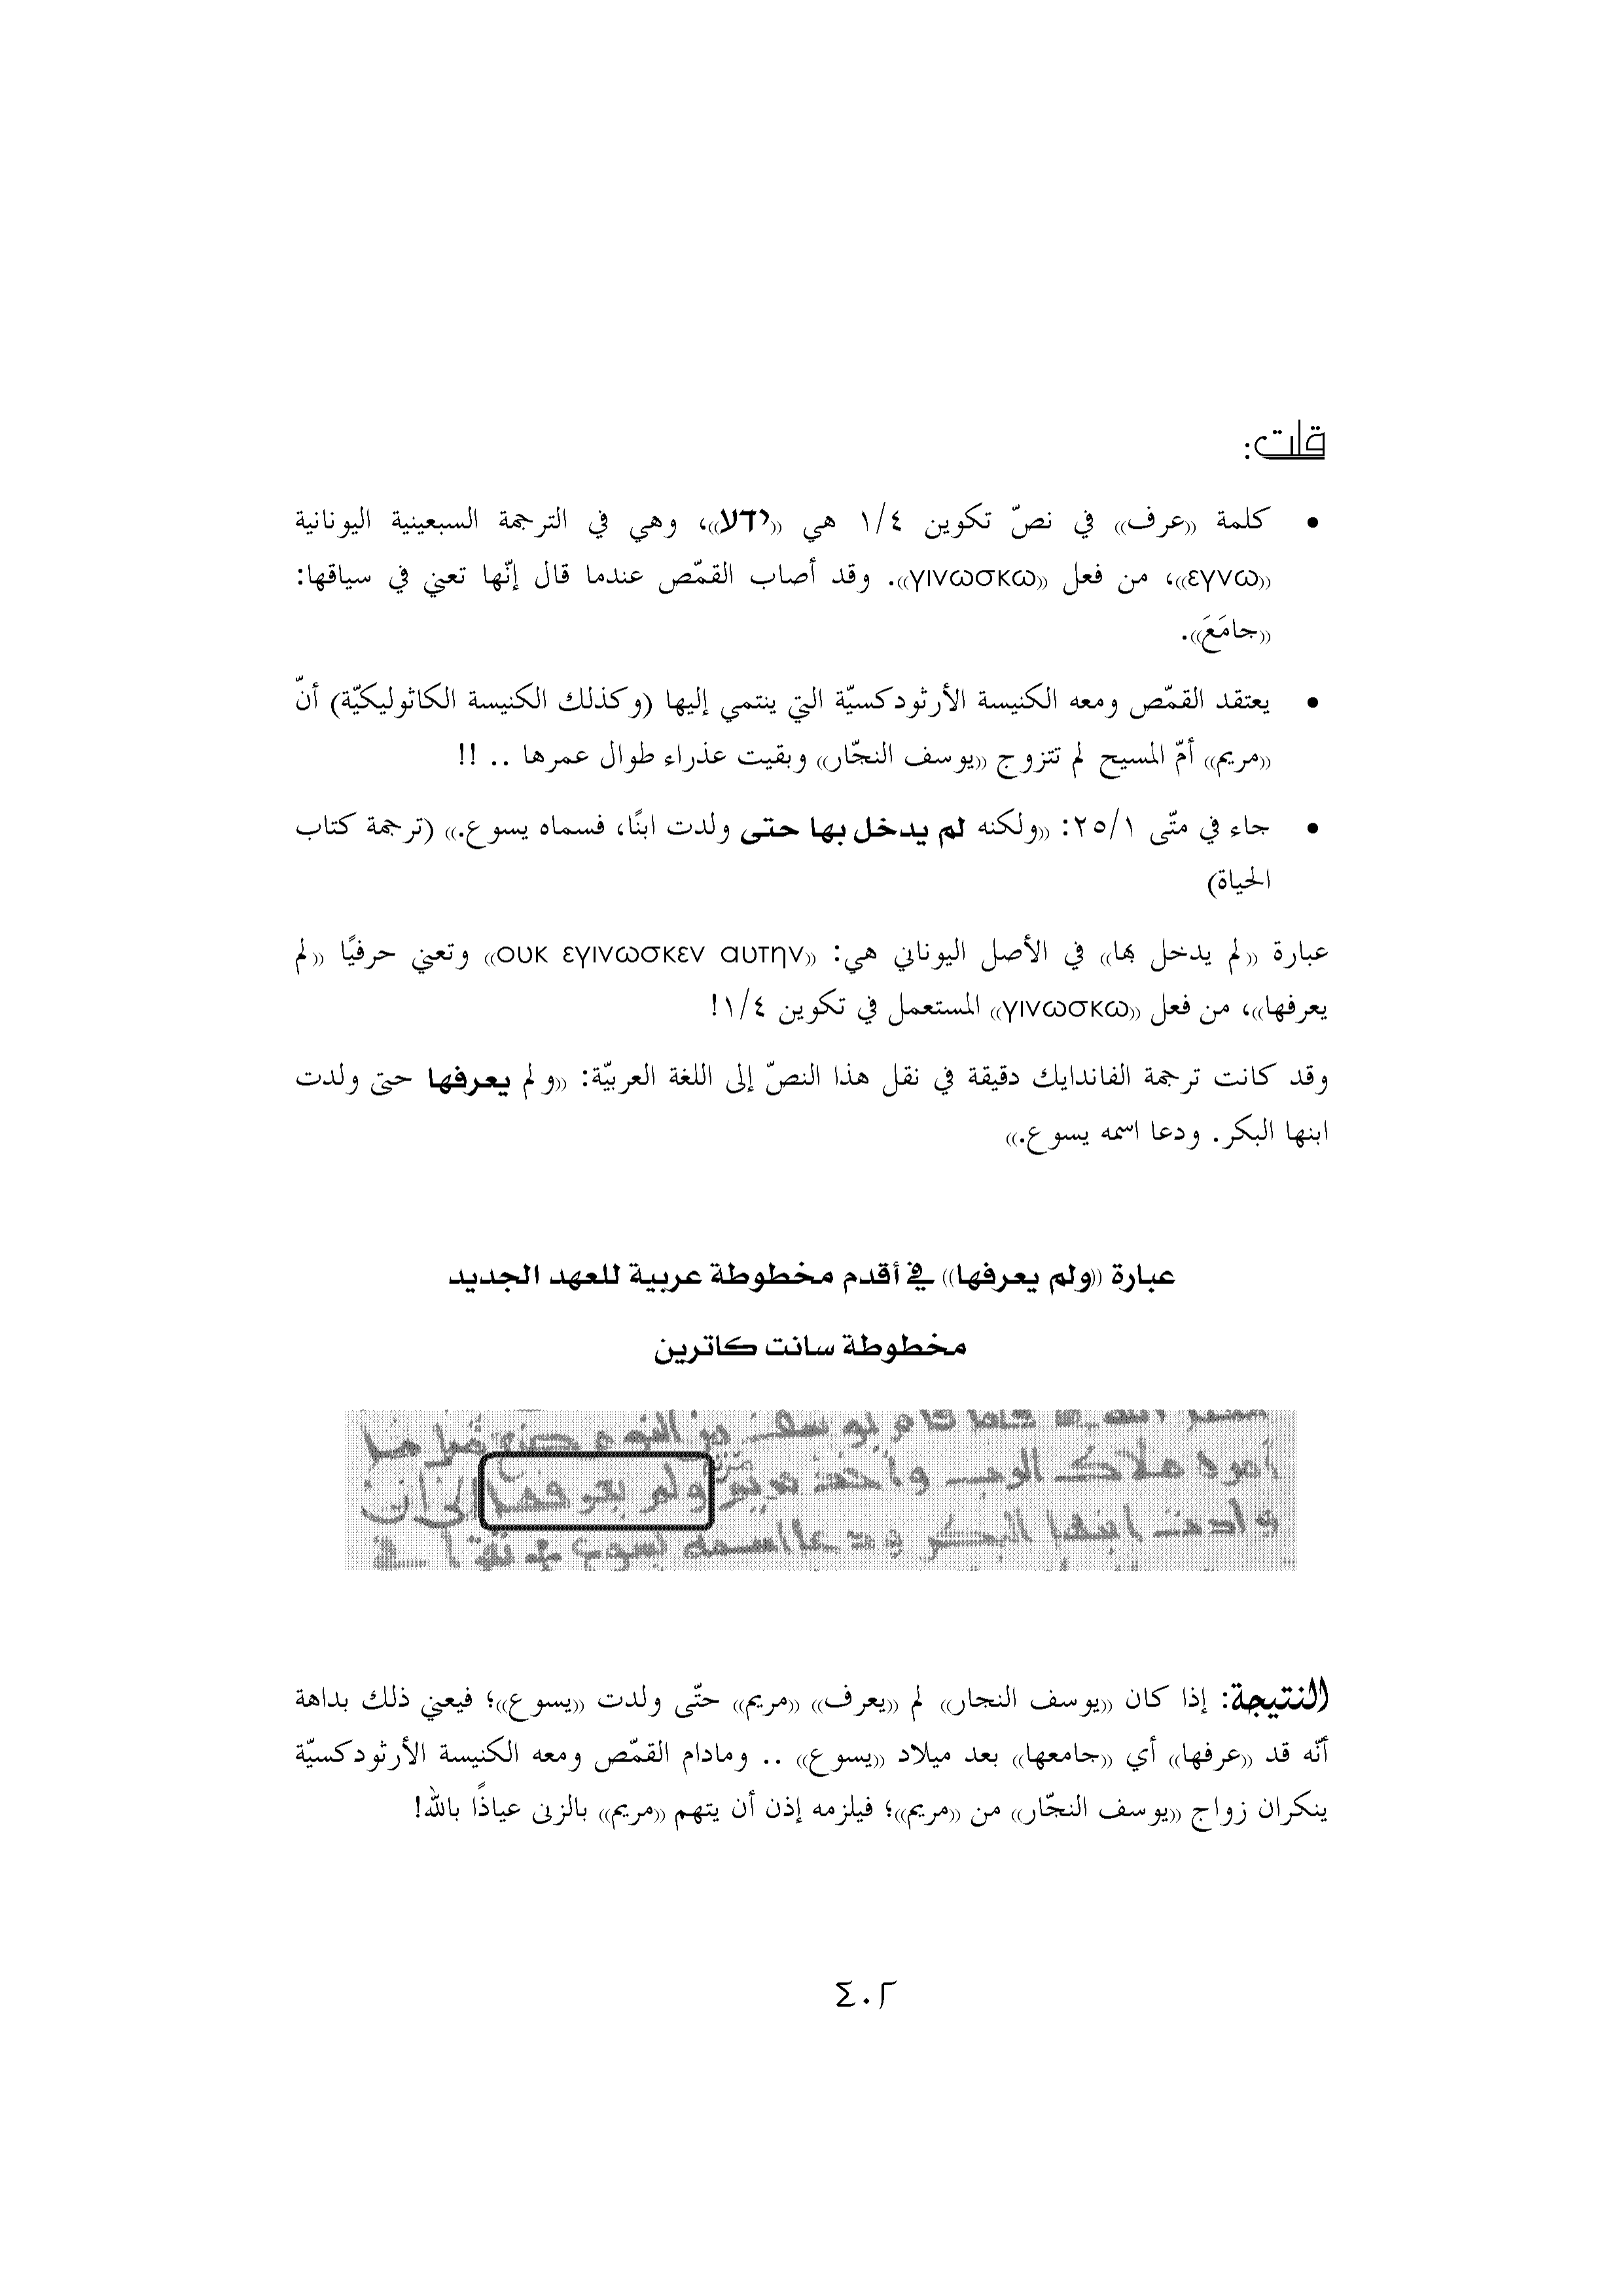 قلت:
• كلمة «عرف» في نصّ تكوين ٤/١ هي «ידע»، وهي في الترجمة السبعينية اليونانية
«εγνω»، من فعل «γινωσκω». وقد أصاب القمّص عندما قال إنّها تعني في سياقها:
«جامَعَ».
• يعتقد القمّص ومعه الكنيسة الأرثودكسيّة التي ينتمي إليها (وكذلك الكنيسة الكاثوليكيّة) أنّ
«مريم» أمّ المسيح لم تتزوج «يوسف النجّار» وبقيت عذراء طوال عمرها .. !!
• جاء في متّى ٢٥/١: «ولكنه لم يدخل بها حتى ولدت ابنًا، فسماه يسوع.» (ترجمة كتاب
الحياة)
عبارة «لم يدخل بها» في الأصل اليوناني هي: «ουκ εγινωσκεν αυτην» وتعني حرفيًا «لم
يعرفها»، من فعل «γινωσκω» المستعمل في تكوين ٤/١!
وقد كانت ترجمة الفاندايك دقيقة في نقل هذا النصّ إلى اللغة العربيّة: «ولم يعرفها حتى ولدت
ابنها البكر. ودعا اسمه يسوع.»
عبارة «ولم يعرفها» في أقدم مخطوطة عربية للعهد الجديد
مخطوطة سانت كاترين
كلما قام يوسف من النوم صنع كما
امره ملاك الرب واخذ مريم ولم يعرفها الى ان
ولدت ابنها البكر ودعا اسمه يسوع
النتيجة: إذا كان «يوسف النجار» لم «يعرف» «مريم» حتّى ولدت «يسوع»؛ فيعني ذلك بداهة
أنّه قد «عرفها» أي «جامعها» بعد ميلاد «يسوع» .. ومادام القمّص ومعه الكنيسة الأرثودكسيّة
ينكران زواج «يوسف النجّار» من «مريم»؛ فيلزمه إذن أن يتهم «مريم» بالزنى عياذًا بالله!
٤٠٢